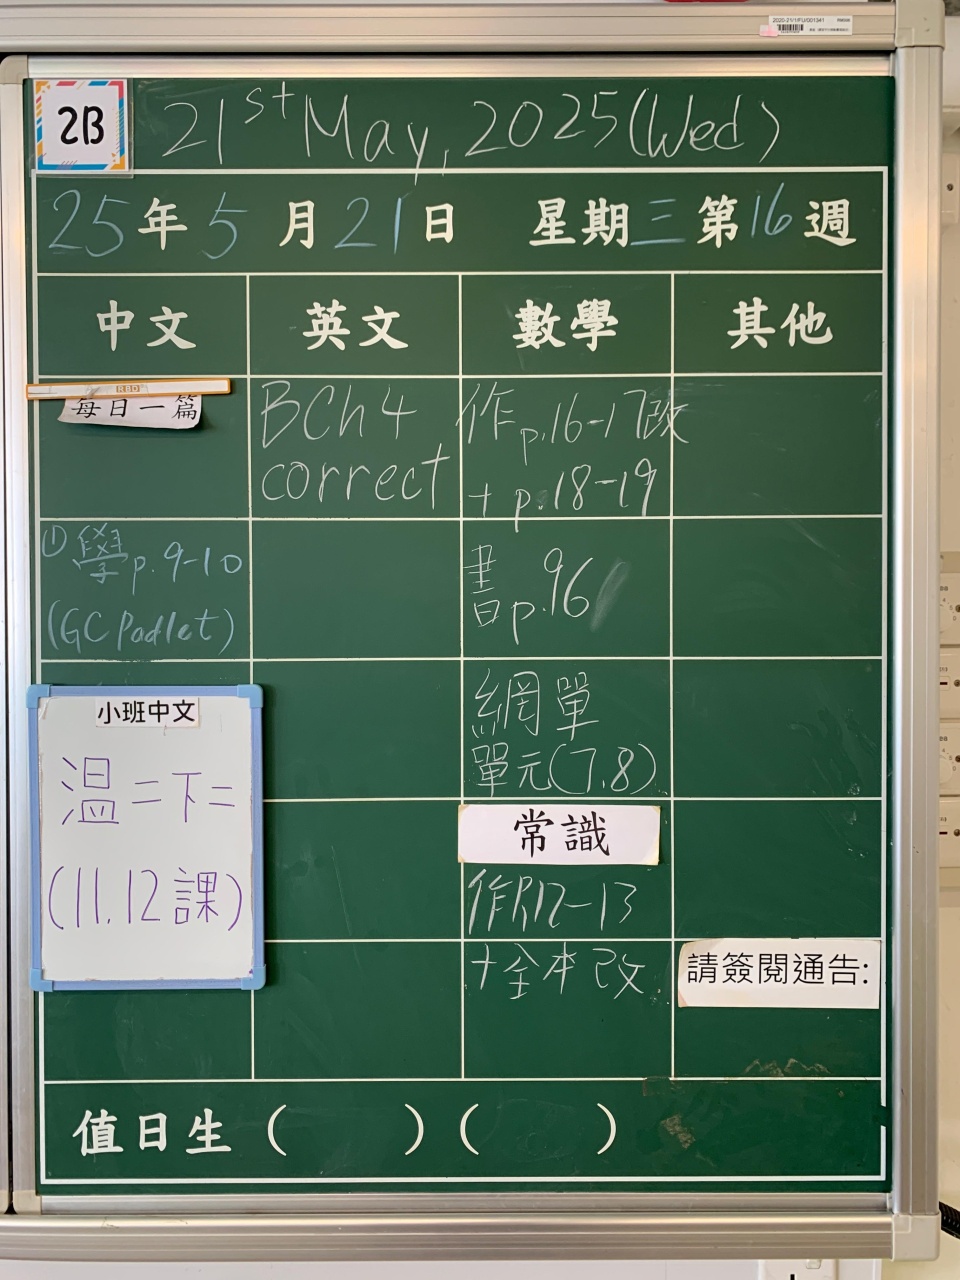 2020-21/1/FU/001341
2B
21st May, 2025(Wed)
25年5月21日 星期三第16週
中文
英文
數學
其他
RBD
每日一篇
①學p.9-10
(GC Padlet)
小班中文
溫二下二
(11,12課)
BCh4
correct
作p.16-17改
+ p.18-19
書p.96
網單
單元(7,8)
常識
作P.12-13
+全本改
請簽閱通告:
值日生( )( )